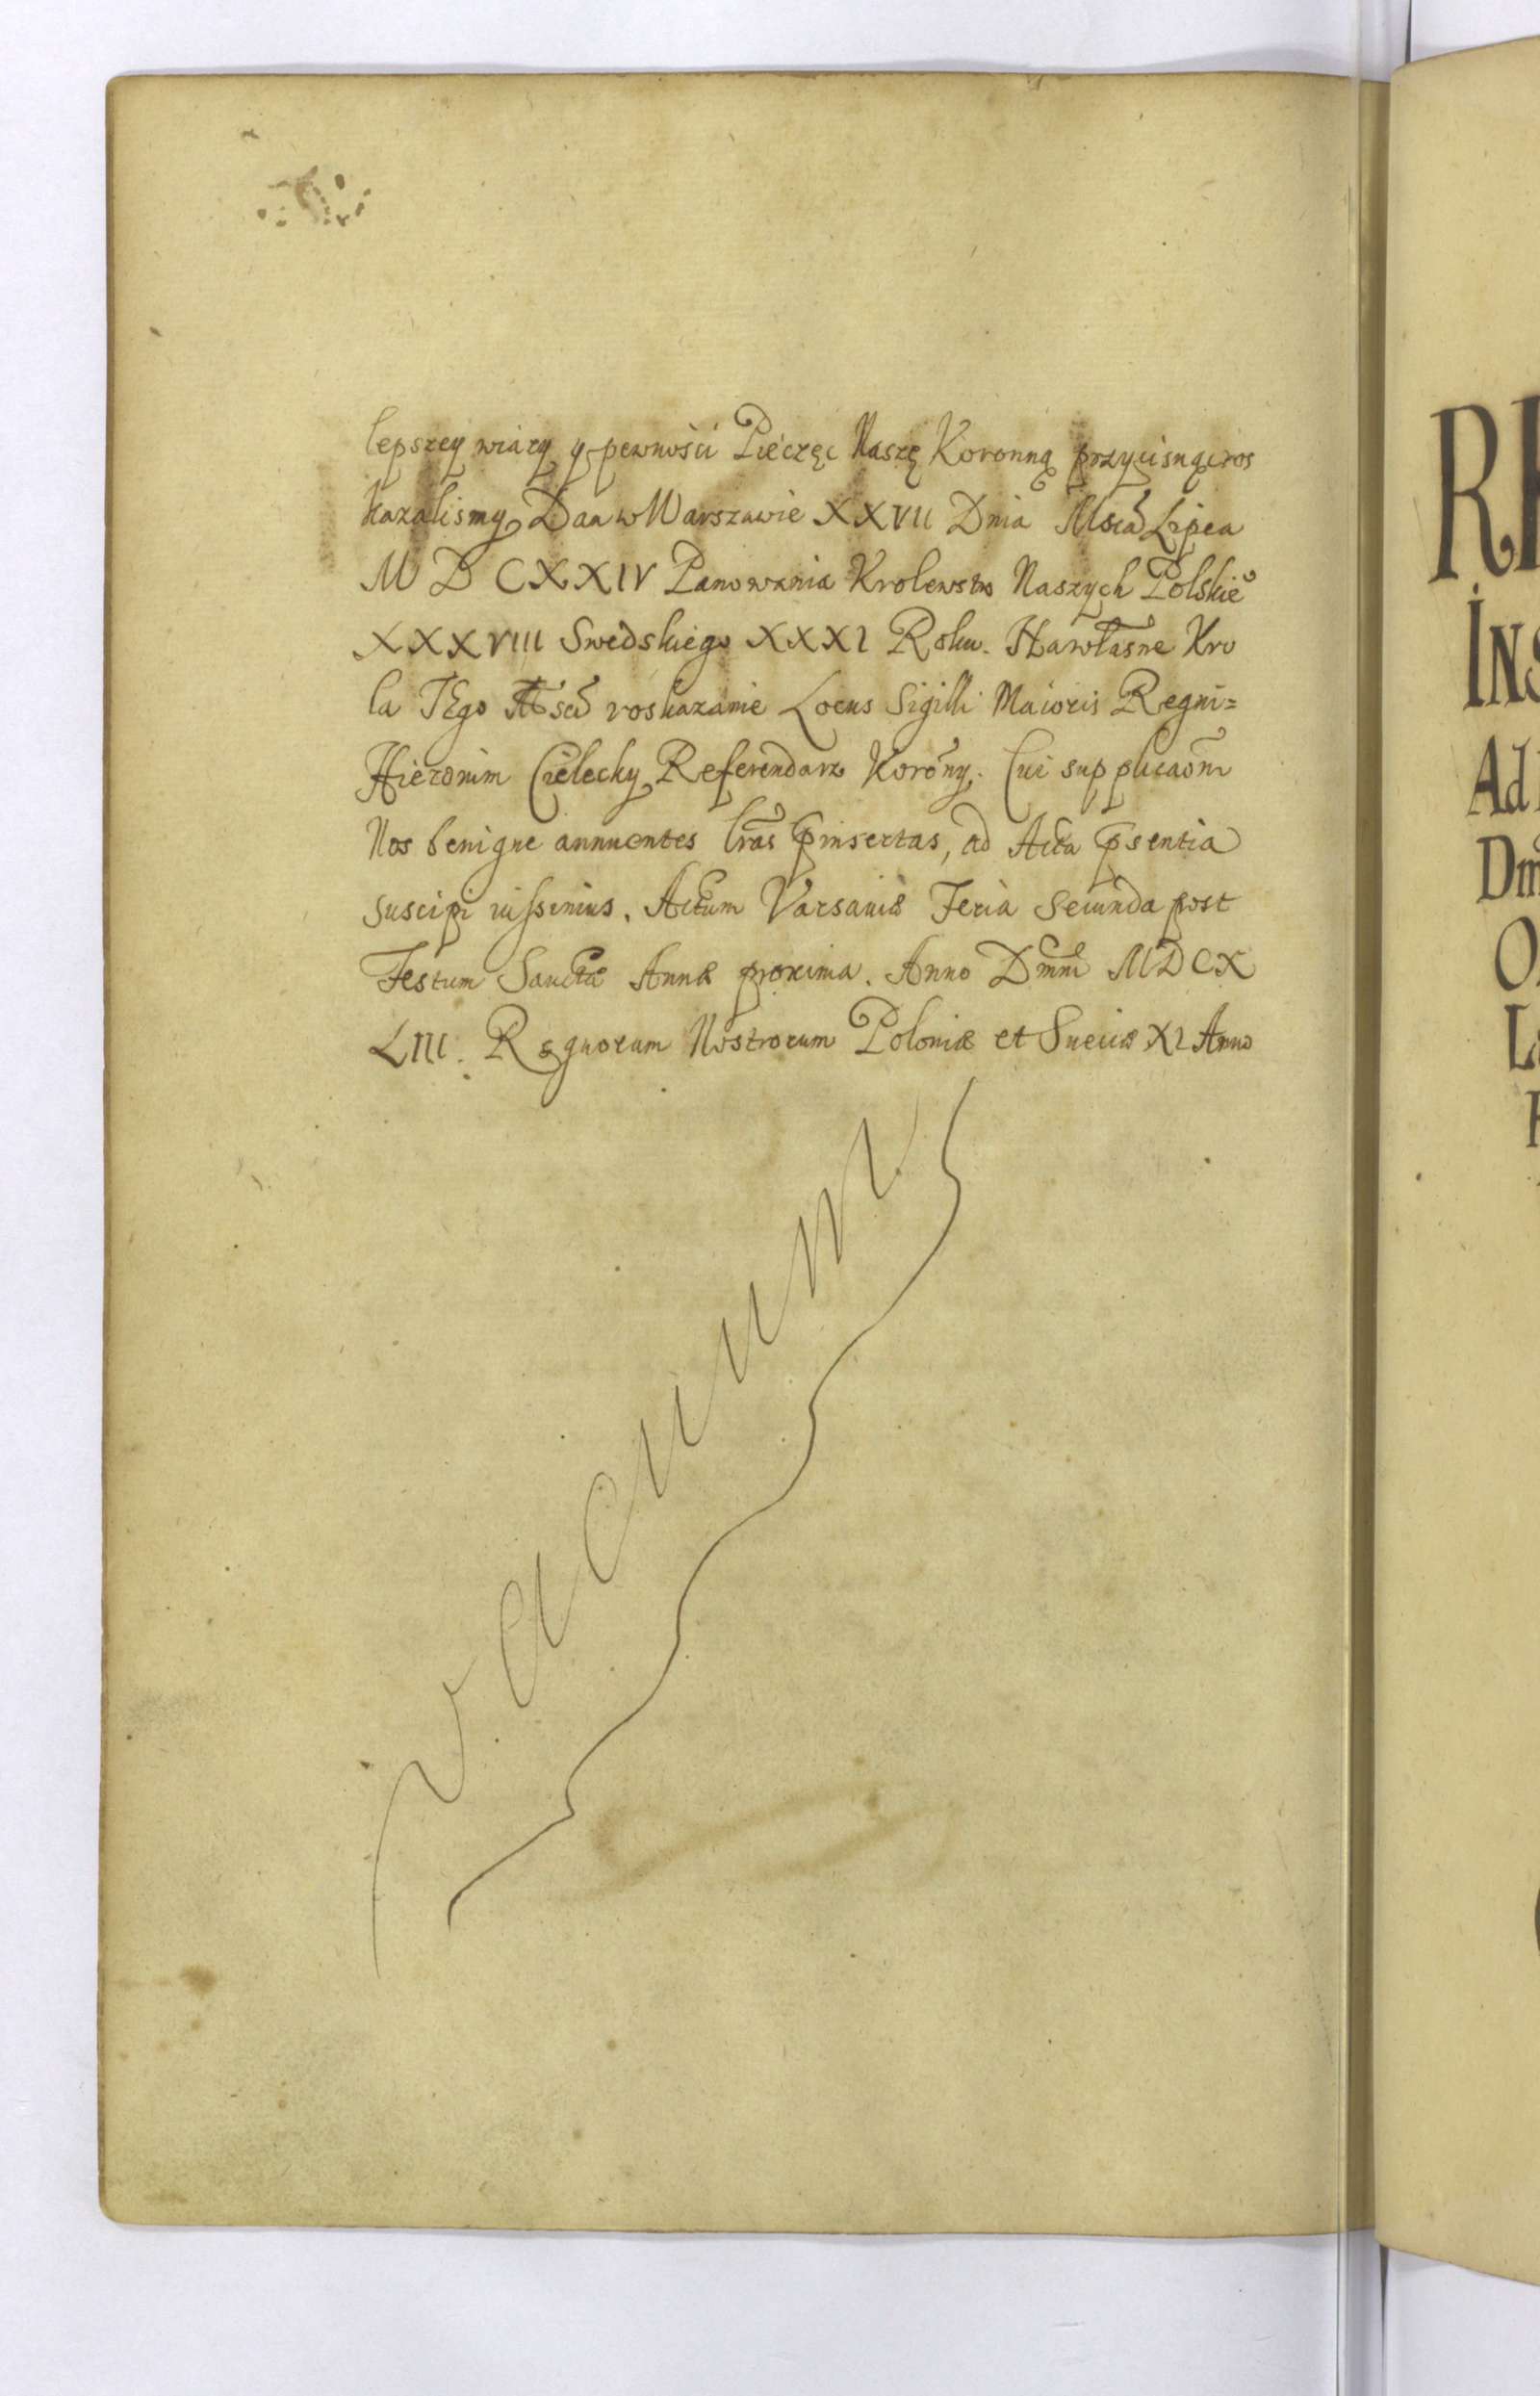 lepszey wiary y pewności Pieczęc Naszę Koronną przycisnąc ros
kazalismy Dan w Warszawie XXVII Dnia Mscā Lipca
M D CXXIV Panowania Krolewstw Naszych Polskie͠
XXXVIII Swedskiego XXXI Roku. Na własne Kro
la JEgo Msci roskazanie Locus Sigilli Maioris Regni=
Hieronim Cielecky Referendarz Korōny. Cui supplicaōni
Nos benigne annuentes lrās p̄insertas, ad Acta p̄sentia
suscipi iussimus. Actum Varsaviæ Feria Secunda post
Festum Sanctæ Annæ proxima. Anno Dm̄ni MDCX
LIII. Regnorum Nostrorum Poloniæ et Sueciæ XI Anno
Vacuum
RE
INS
Ad
Dm̄
O
L